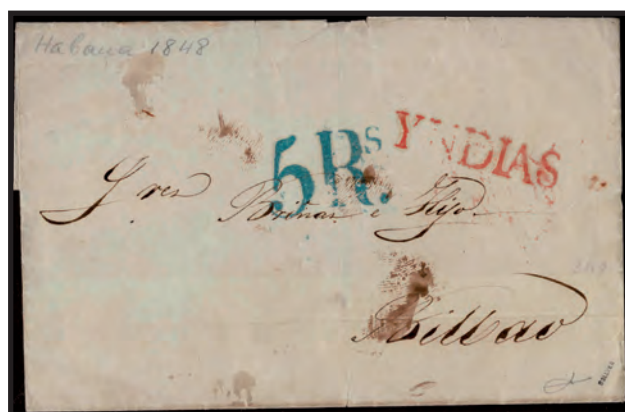 Habana 1848
5 Rs YNDIAS
Sres Briñas e Hijo
Bilbao